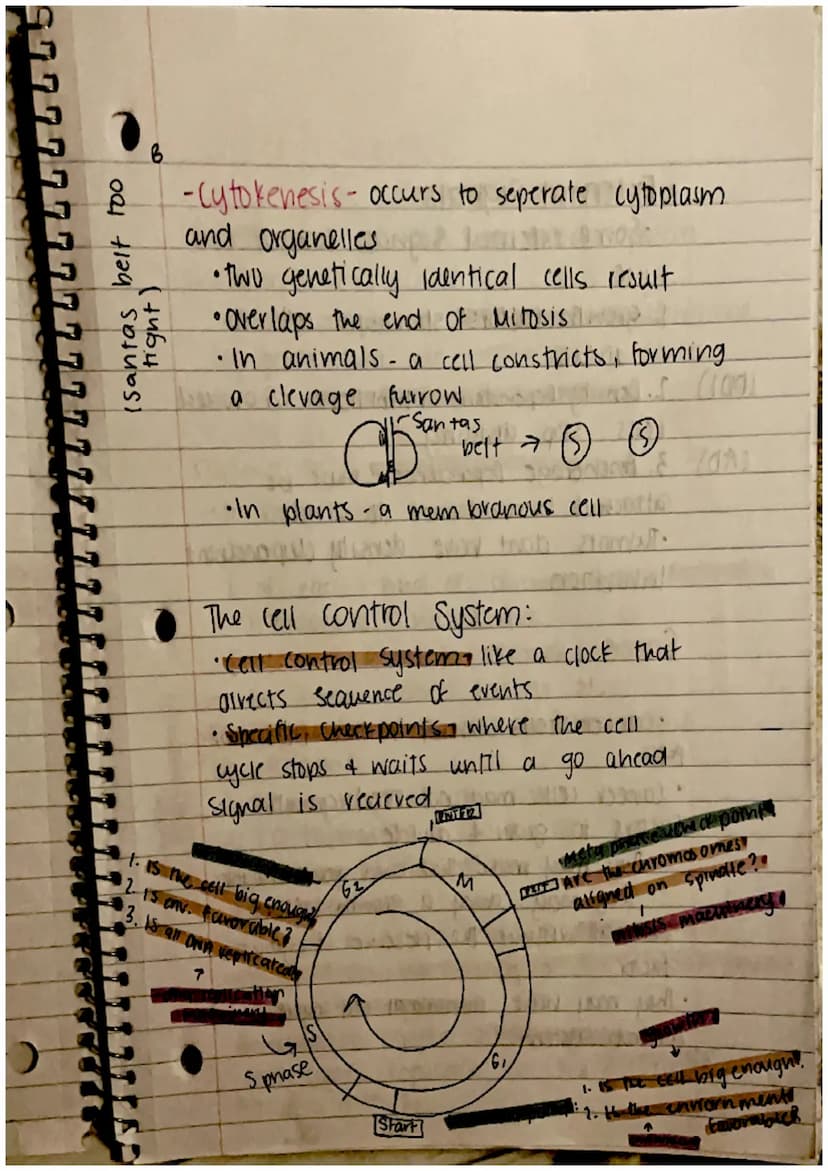 B
(Santas belt too
tight)
-Cytokenesis- occurs to seperate cytoplasm
and organelles
•Two genetically identical cells result
•overlaps the end of Mitosis
•In animals - a cell constricts, forming
a clevage furrow
Santas
belt → S S
•In plants - a membranous cell
The cell control System:
•Cell control system, like a clock that
directs sequence of events
•Specific, checkpoints, where the cell
cycle stops & waits until a go ahead
signal is recieved
ENTER
M
G2
S
G1
Start
S phase
1. Is the cell big enough?
2. Is env. favorable?
3. Is all DNA replicated
Metaphase checkpoint
EXIT Are the chromosomes
alligned on spindle?
mitosis machinery
growth
1. Is the cell big enough?
2. Is the enviornment
favorable?